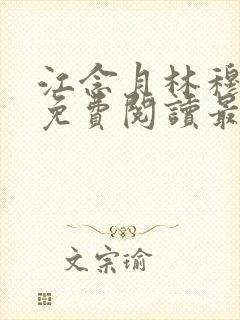 江念月林穆
免費閱讀最
文宗瑜